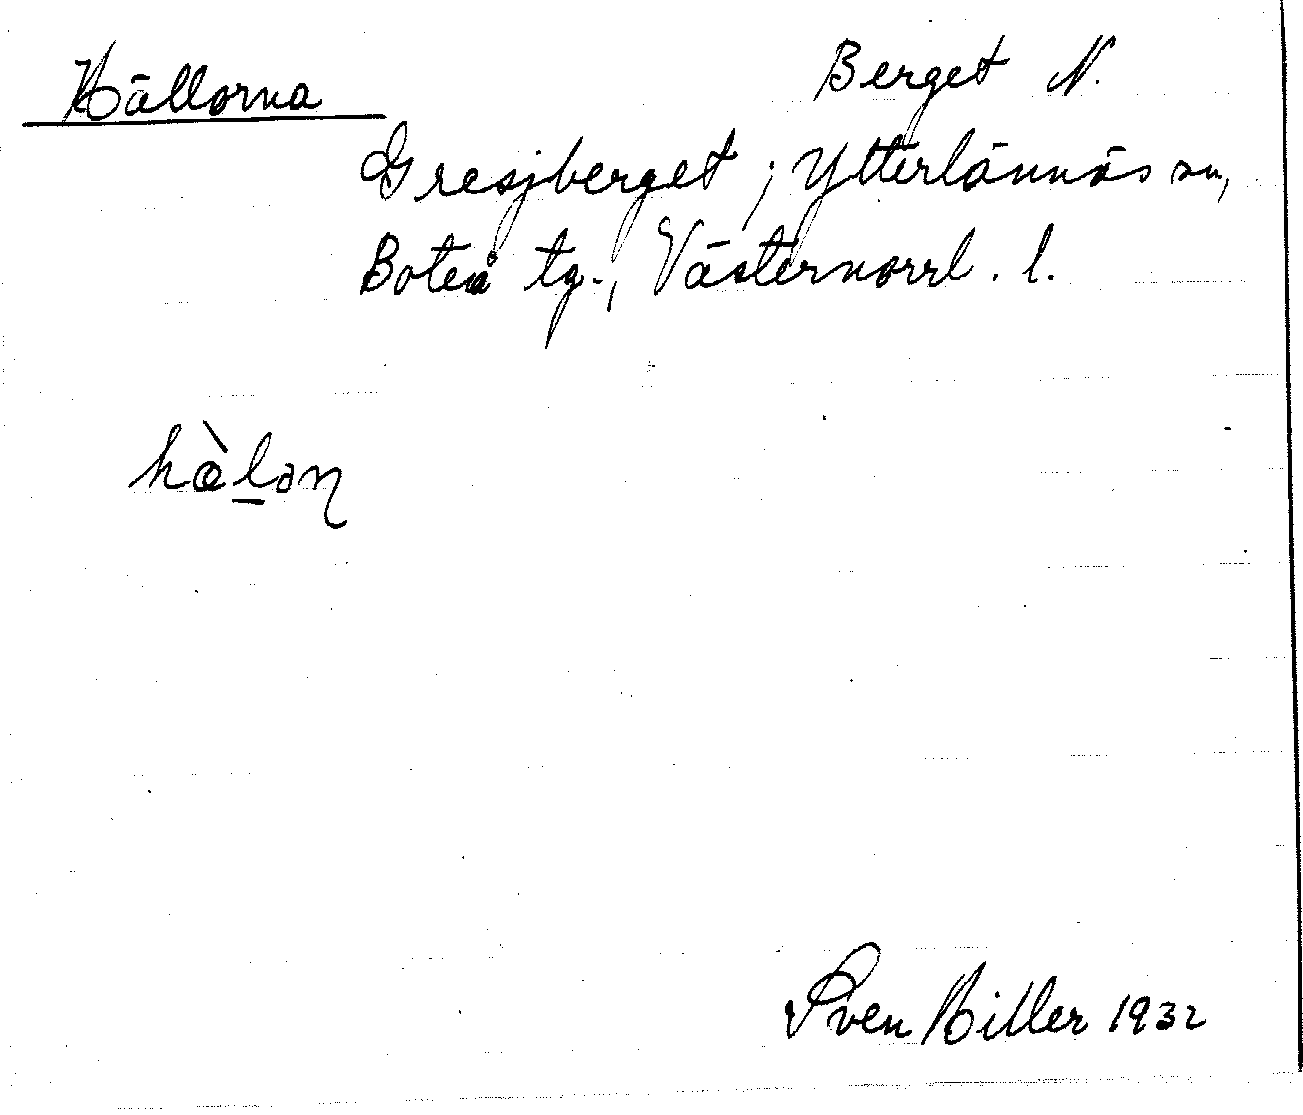 Hällorna
Berget N.
Gresjberget, Ytterlännäs sn,
Boteå tg., Västernorrl. l.
Sven Hiller 1932